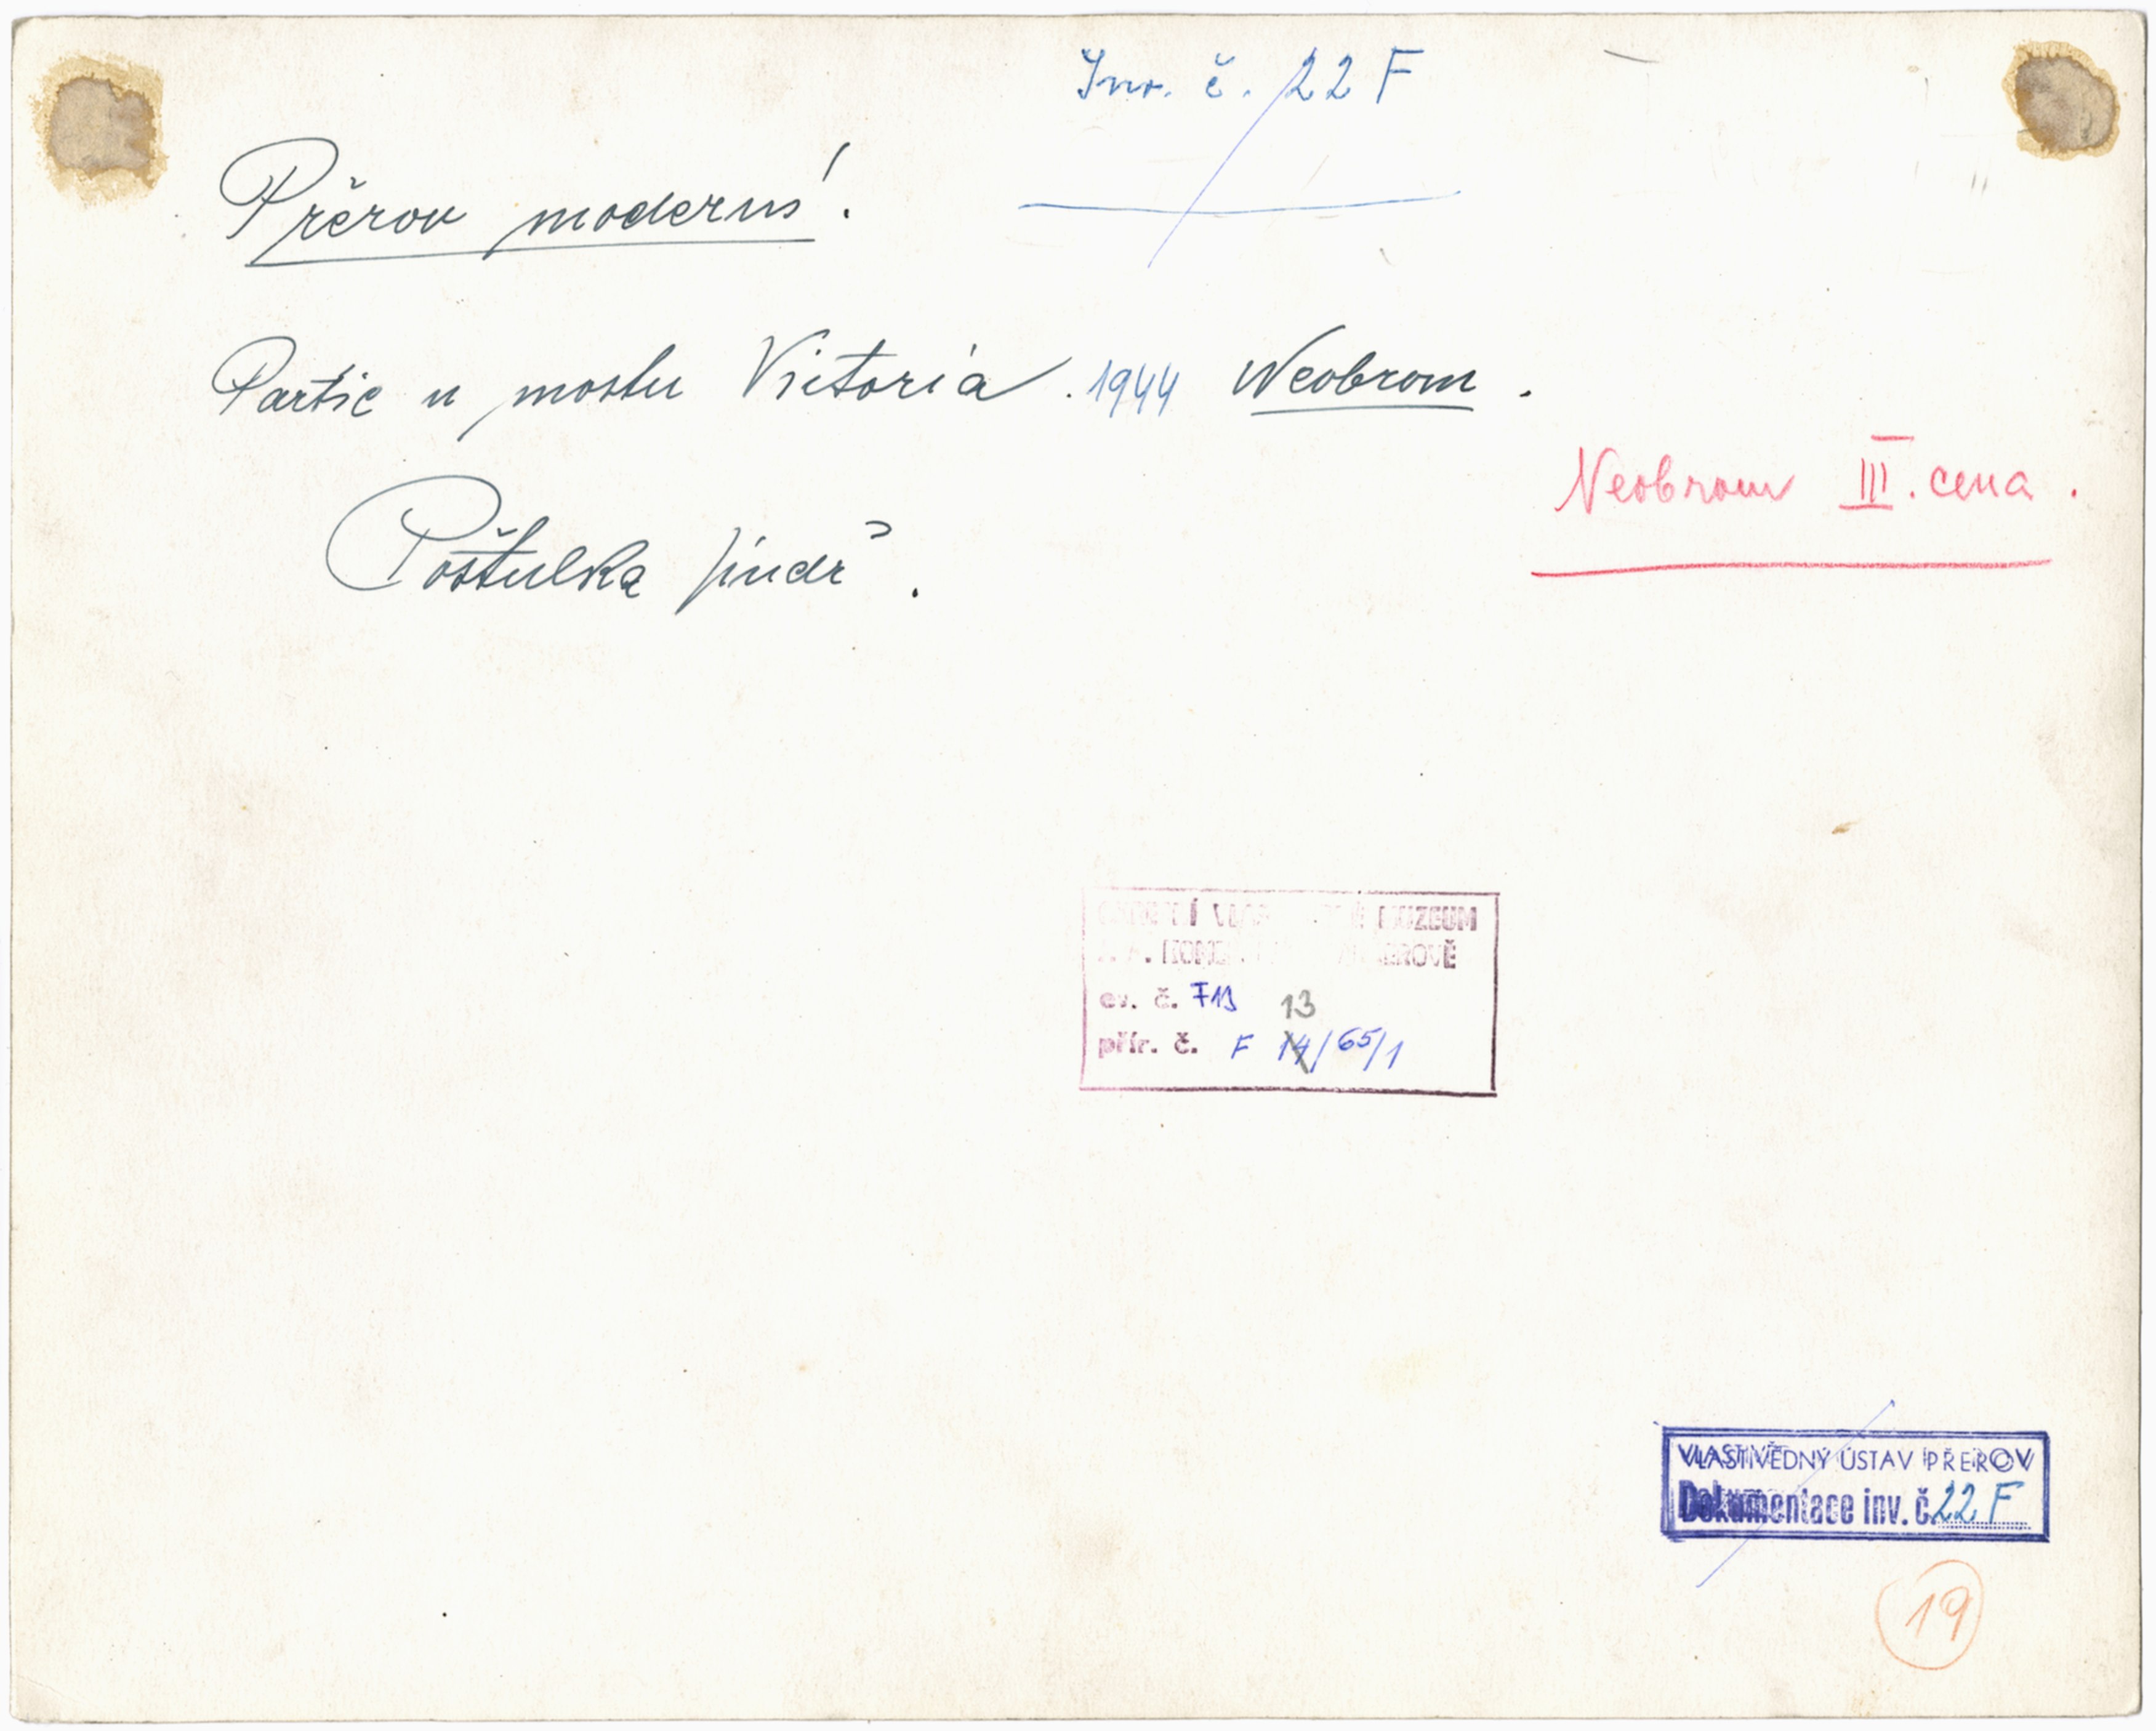 Inv. č. 22 F
Přerov moderní.
Partie u mostu Victoria. 1944 Neobrom.
Neobrom III. cena.
Poštulka Jindř.
MUZEUM
ev. č. 13
přír. č. F 14/65/1
VLASTIVĚDNÝ ÚSTAV PŘEROV
Dokumentace inv. č. 22 F
19